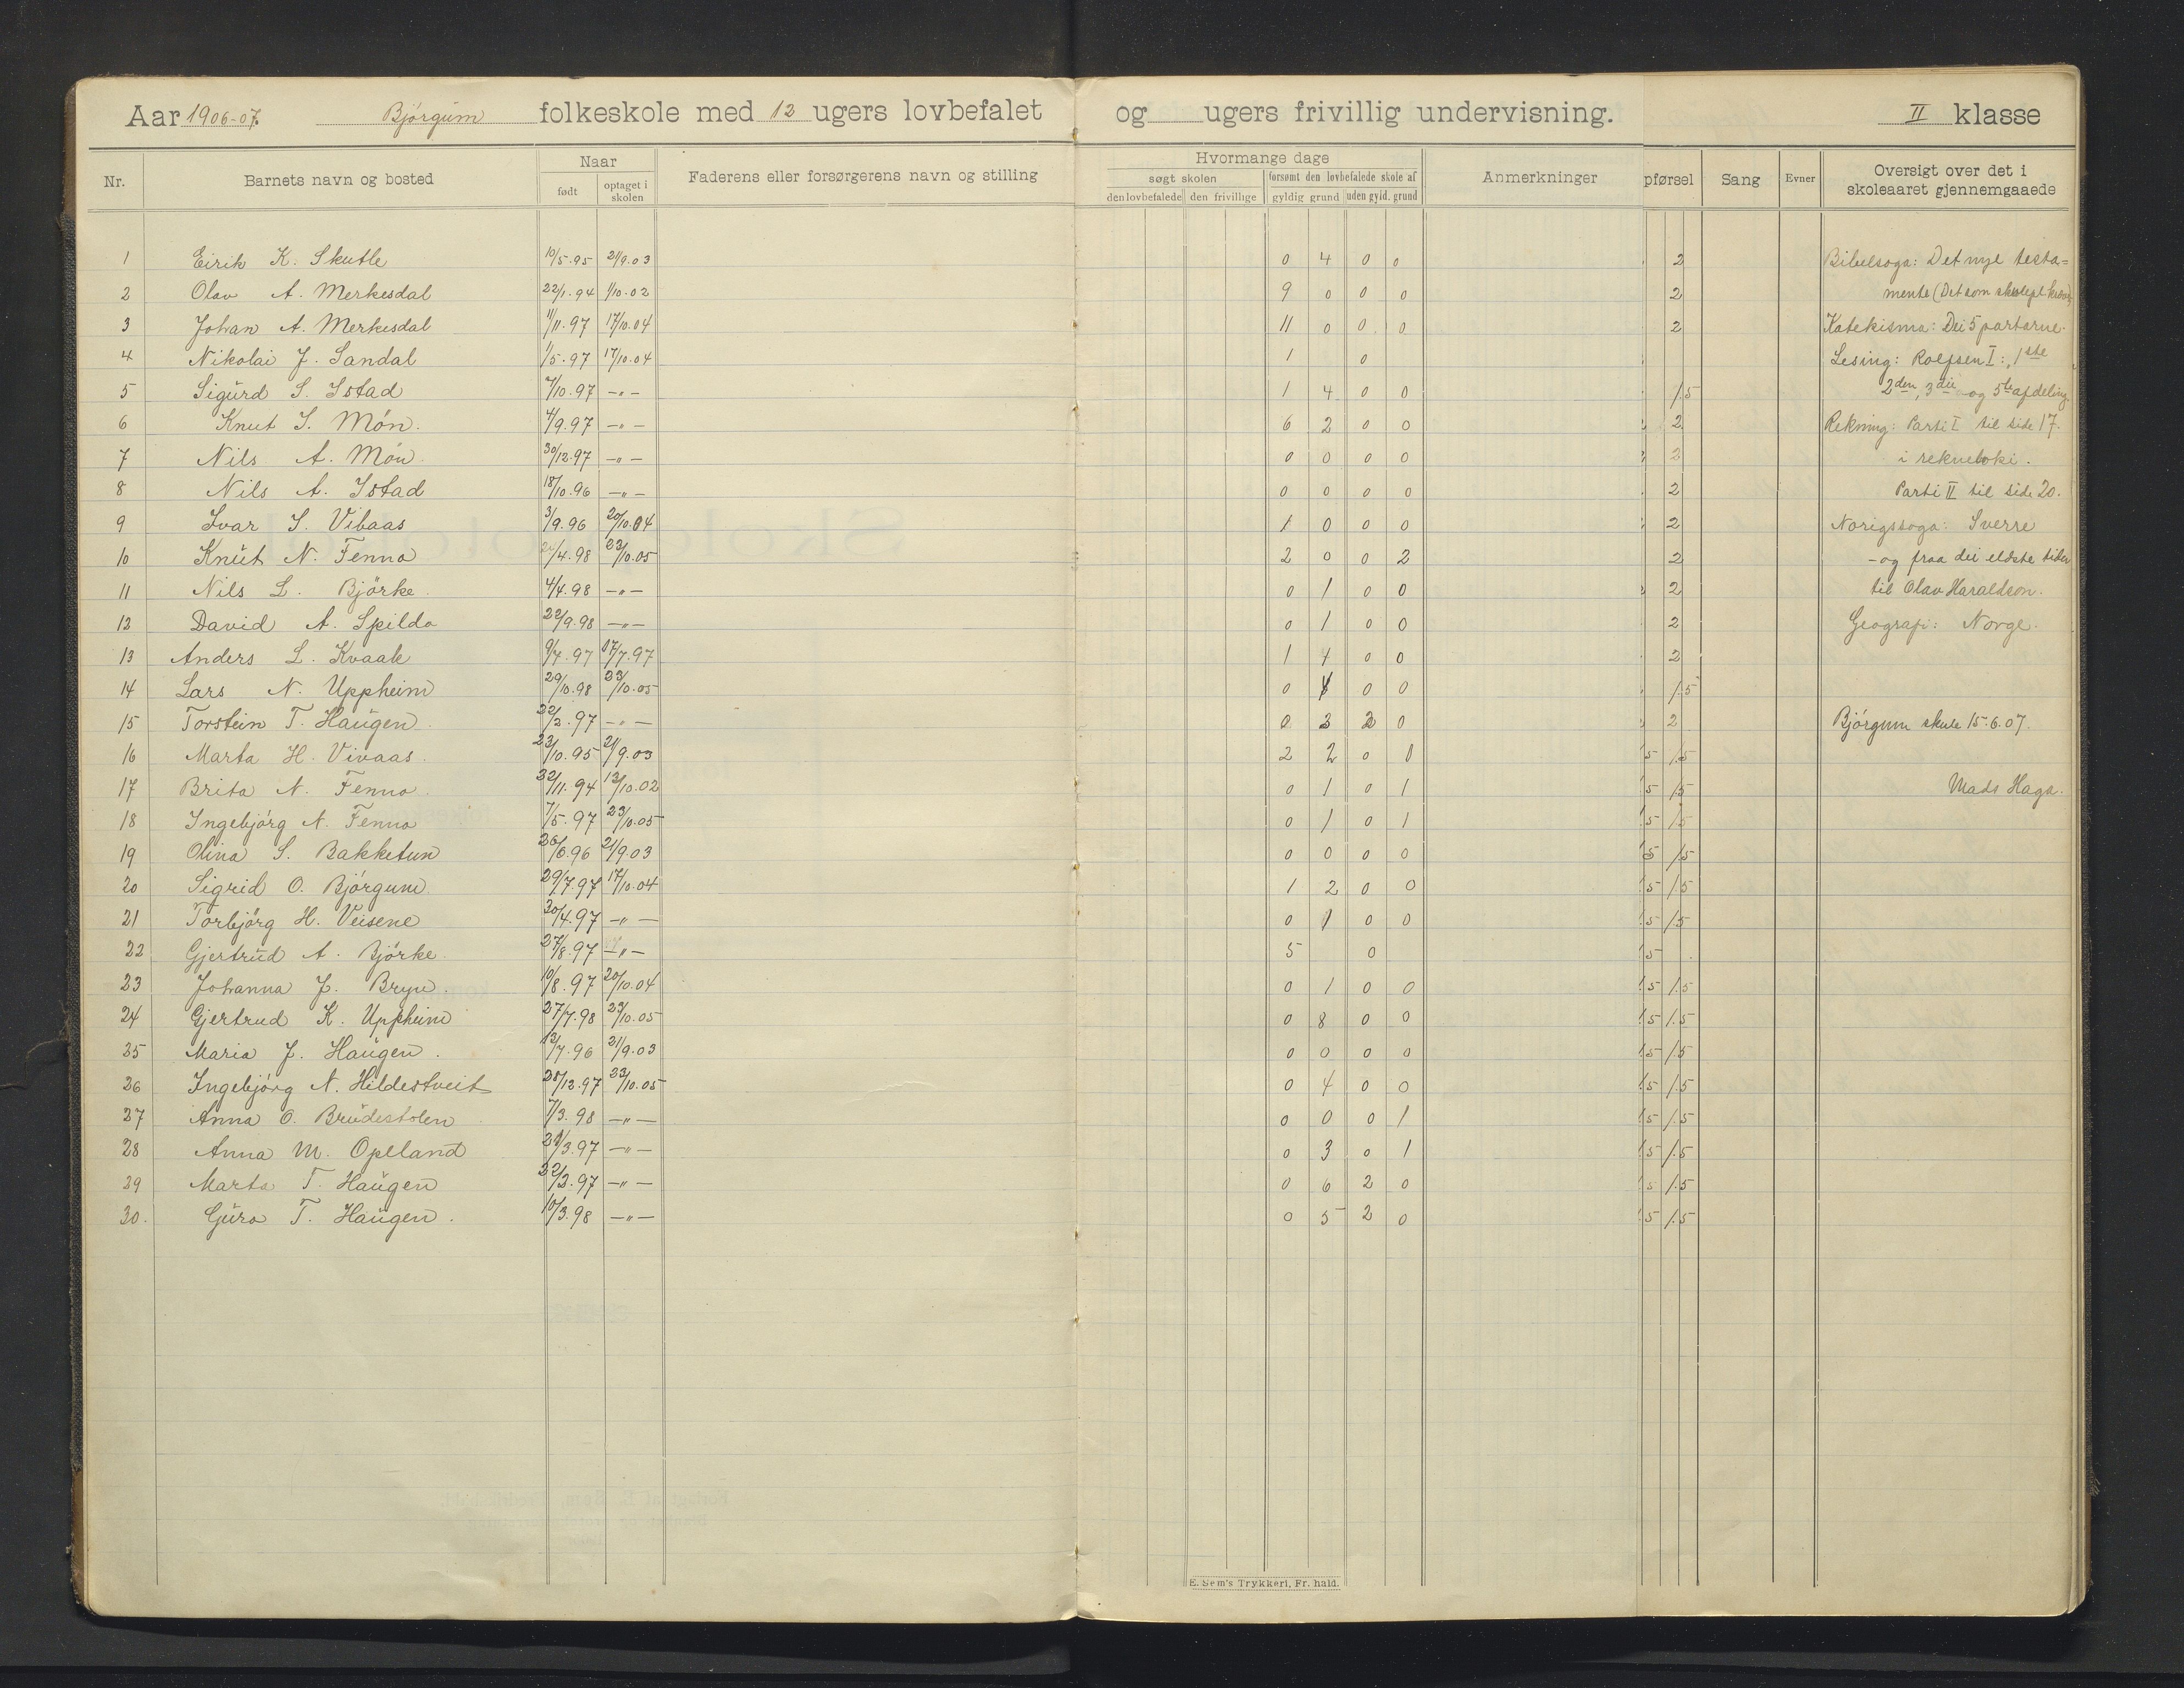 Aar 1906-07. Bjørgum folkeskole med 12 ugers lovbefalet og ugers frivillig undervisning. II klasse
Nr. Barnets navn og bosted Naar født optaget i skolen Faderens eller forsørgerens navn og stilling Hvormange dage søgt skolen den lovbefalede den frivillige forsømt den lovbefalede skole af gyldig grund uden gyld. grund Anmerkninger pførsel Sang Evner Oversigt over det i skoleaaret gjennemgaaede
1 Eirik K. Skutle 10/5.95 21/9.03 0 4 0 0 2 Bibelsoga: Det nye testa=
2 Olav A. Merkesdal 22/1.94 1/10.02 9 0 0 0 2 mente (Det som
3 Johan A. Merkesdal 11/11.97 17/10.04 11 0 0 0 2 Katekisma: Dei 5 partarne.
4 Nikolai J. Sandal 1/5.97 17/10.04 1 0 Lesing: Rolfsen I: 1ste
5 Sigurd S. Istad 7/10.97 -"- 1 4 0 0 1.5 2den, 3die og 5te afdeling.
6 Knut S. Møn. 4/9.97 -"- 6 2 0 0 2 Rekning: Parti I til side 17.
7 Nils A. Møn 30/12.97 -"- 0 0 0 0 2 i rekneboki.
8 Nils A. Istad 18/10.96 -"- 0 0 0 0 2 Parti II til side 20.
9 Ivar S. Vibaas 3/9.96 20/10.04 1 0 0 0 2 Norigssoga: Sverre
10 Knut N. Fenno /4.98 23/10.05 2 0 0 2 2 - og fraa dei eldste tider
11 Nils L. Bjørke. 4/4.98 -"- 0 1 0 0 2 til Olav Haraldson.
12 David A. Spilda 22/9.98 -"- 0 1 0 0 2 Geografi: Norge.
13 Anders L. Kvaale 9/7.97 17/7.97 1 4 0 0 2
14 Lars N. Uppheim 29/10.98 23/10.05 0 0 0 1.5
15 Torstein T. Haugen. 22/2.97 -"- 0 3 2 0 2 Bjørgum skule 15.6.07.
16 Marta H. Vivaas. 23/10.95 21/9.03 2 2 0 0 5 1.5
17 Brita N. Fenno. 22/11.94 13/10.02 0 1 0 1 5 1.5 Mads Haga.
18 Ingebjørg N. Fenno 7/5.97 23/10.05 0 1 0 1 5 1.5
19 Olina S. Bakketun 26/6.96 21/9.03 0 0 0 0 1.5 1.5
20 Sigrid O. Bjørgum. 29/7.97 17/10.04 1 2 0 0 1.5 1.5
21 Torbjørg H. Veisene 20/4.97 -"- 0 1 0 0 1.5 1.5
22 Gjertrud A. Bjørke. 27/8.97 -"- 5 0 1.5
23 Johanna J. Bryn. 10/8.97 20/10.04 0 1 0 0 1.5 1.5
24 Gjertrud K. Uppheim 27/7.98 23/10.05 0 8 0 0 1.5 1.5
25 Maria J. Haugen. 12/7.96 21/9.03 0 0 0 0 1.5 1.5
26 Ingebjørg N. Hildestveit 28/12.97 23/10.05 0 4 0 0 1.5 1.5
27 Anna O. Brudestolen 7/3.98 -"- 0 0 0 1 1.5 1.5
28 Anna M. Opeland 21/3.97 -"- 0 3 0 1 1.5 1.5
29 Marta T. Haugen 22/2.97 -"- 0 6 2 0 1.5 1.5
30. Guro T. Haugen. 10/3.98 -"- 0 5 2 0 1.5 1.5
E. Sem's Trykkeri, Fr. hald.